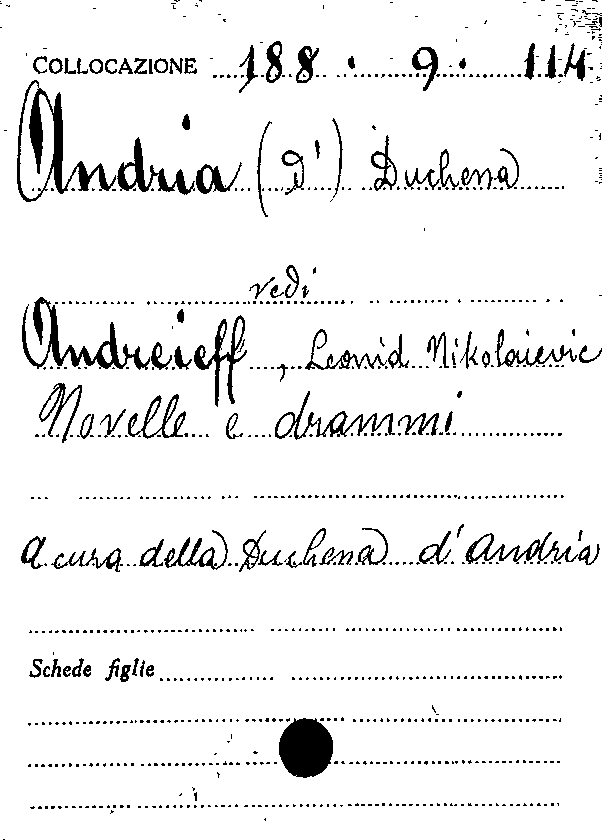 COLLOCAZIONE 188 . 9 . 114
Andria (D') Duchessa
vedi
Andreieff, Leonid Nikolaievic
Novelle e drammi
A cura della Duchessa d'Andria
Schede figlie